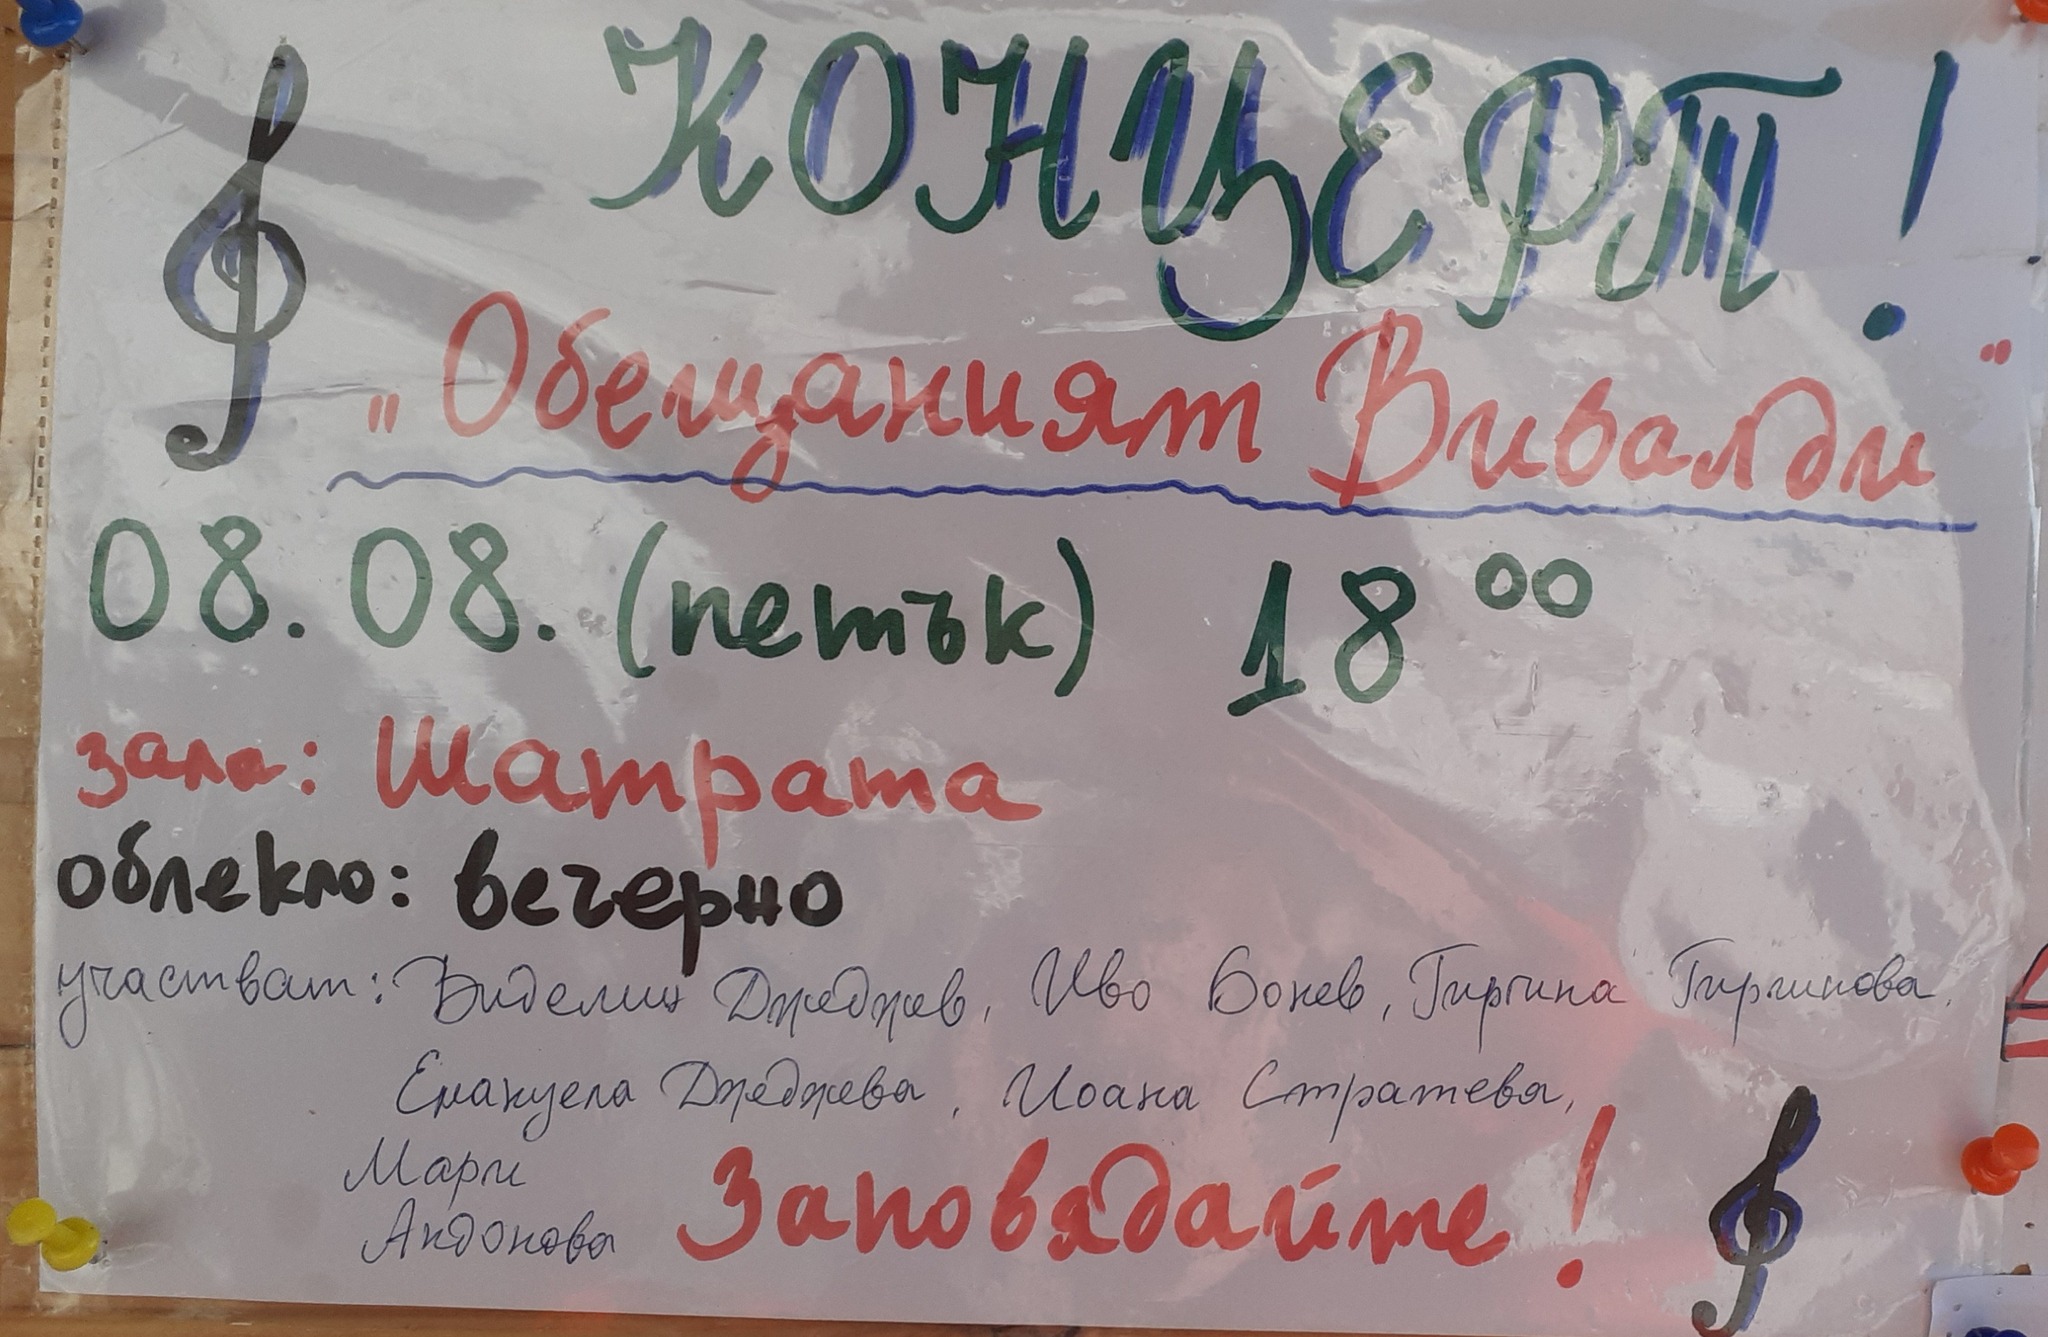 КОНЦЕРТ!
"Обещаният Вивалди"
08.08. (петък) 18 00
зала: Шатрата
облекло: вечерно
участват: Виделин Джеджев, Иво Бонев, Гиргина Гиргинова,
Емануела Джеджева, Иоана Стратева,
Мари
Андонова
Заповядайте!